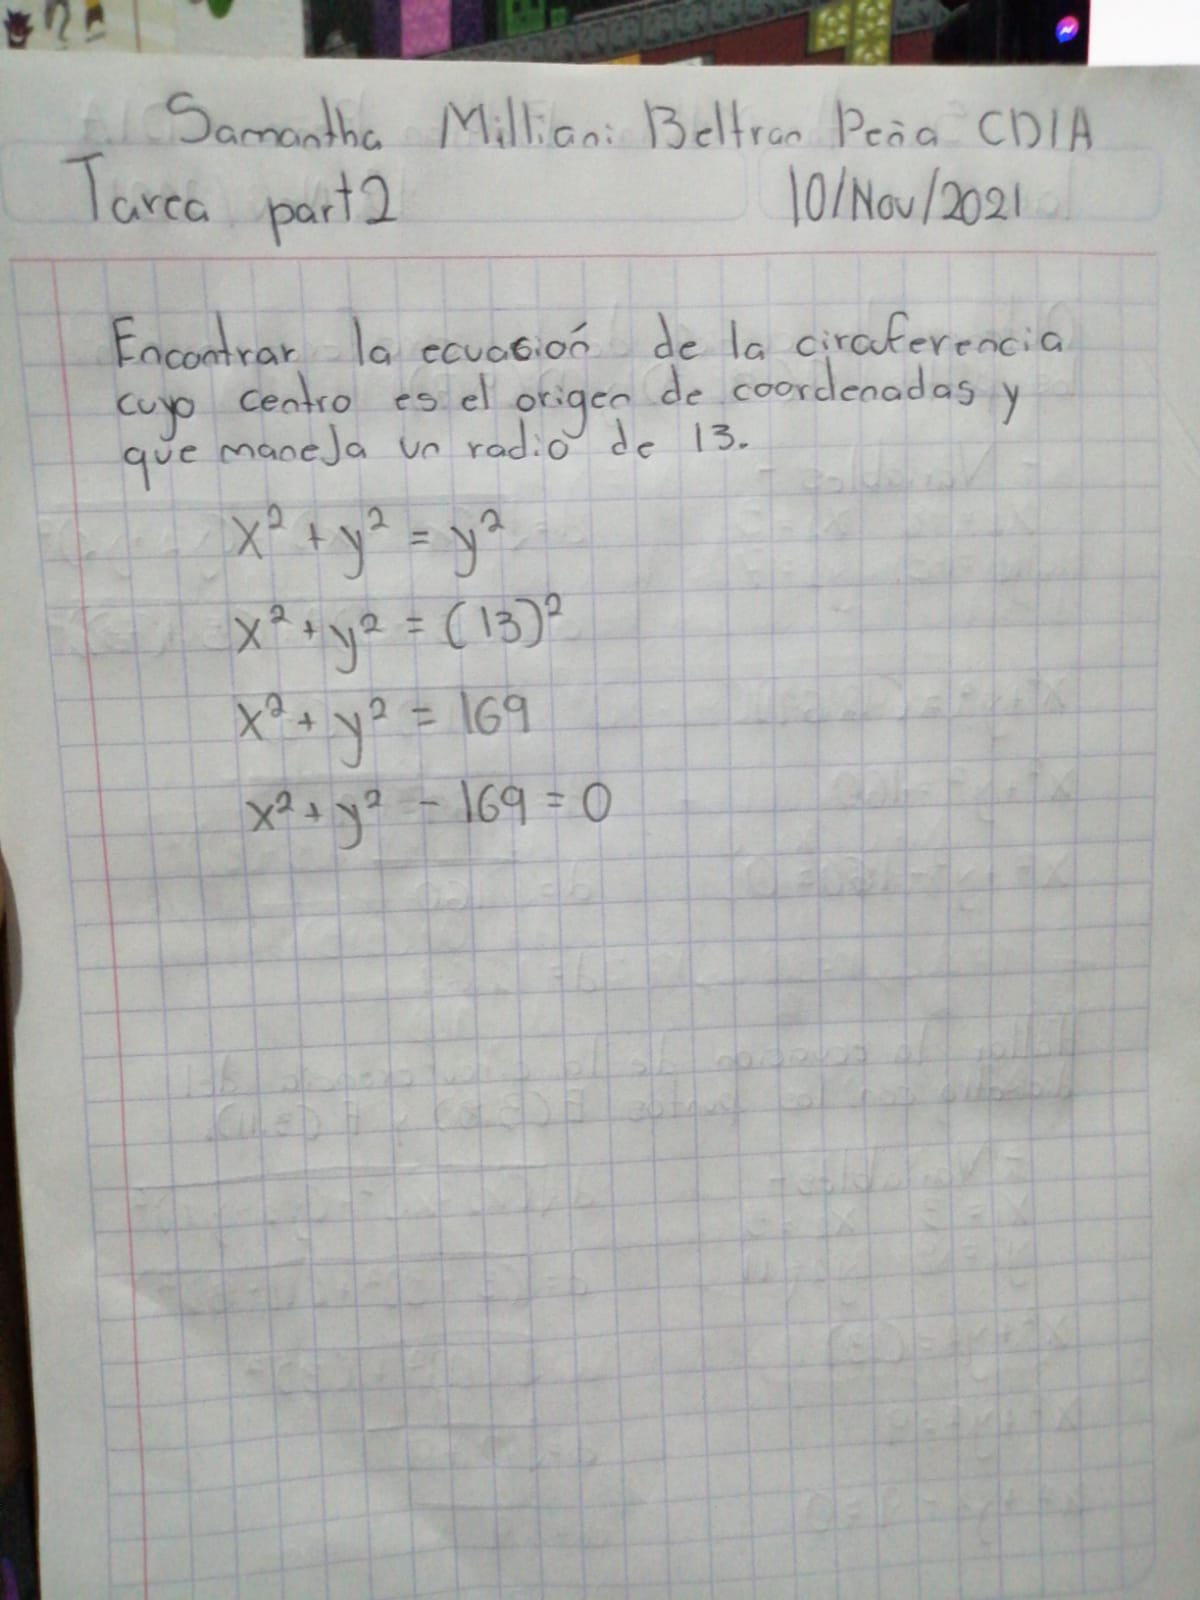 Samantha Milliani Beltran Peña CDIA
Tarea part2 10/Nov/2021
Encontrar la ecuasión de la circuferencia
cuyo centro es el origen de coordenadas y
que maneja un radio de 13.
x² + y² = y²
x² + y² = (13)²
x² + y² = 169
x² + y² - 169 = 0